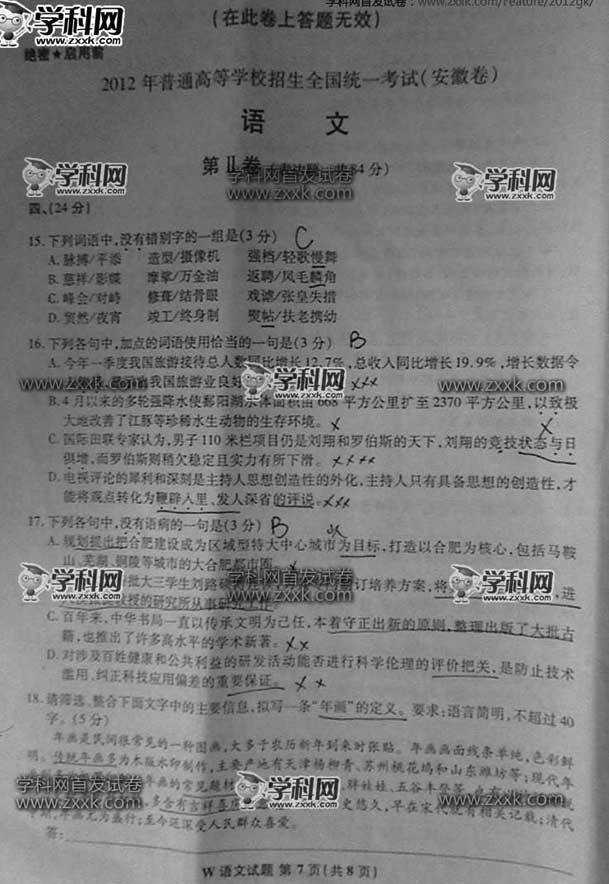 学科网首发试卷：www.zxxk.com/Feature/2012gk/
学科网
www.zxxk.com
(在此卷上答题无效)
绝密★启用前
2012年普通高等学校招生全国统一考试(安徽卷)
语 文
第Ⅱ卷
学科网
www.zxxk.com
学科网首发试卷
www.zxxk.com
学科网
www.zxxk.com
四、(24分)
15.下列词语中,没有错别字的一组是(3分) C
A.脉搏/平添 造型/摄像机 强档/轻歌慢舞
B.慈祥/影牒 摩挲/万金油 返聘/凤毛麟角
C.峰会/对峙 修葺/结骨眼 戏谑/张皇失措
D.贸然/夜宵 竣工/终身制 熨帖/扶老携幼
16.下列各句中,加点的词语使用恰当的一句是(3分) B
A.今年一季度我国旅游接待总人数同比增长12.7%,总收入同比增长19.9%,增长数据令
我国旅游业良好
学科网首发试卷
www.zxxk.com
学科网
www.zxxk.com
学科网首发试卷
www.zxxk.com
B.4月以来的多轮强降水使鄱阳湖水体面积由668平方公里扩至2370平方公里,以致极
大地改善了江豚等珍稀水生动物的生存环境。
C.国际田联专家认为,男子110米栏项目仍是刘翔和罗伯斯的天下,刘翔的竞技状态与日
俱增,而罗伯斯则稍欠稳定且实力有所下滑。
D.电视评论的犀利和深刻是主持人思想创造性的外化,主持人只有具备思想的创造性,才
能将观点转化为鞭辟入里、发人深省的评说。
17.下列各句中,没有语病的一句是(3分) B
A.规划提出把合肥建设成为区域型特大中心城市为目标,打造以合肥为核心,包括马鞍
山、芜湖、铜陵等城市的大合肥都市圈。
学科网
www.zxxk.com
批大三学生刘路
学科网首发试卷
www.zxxk.com
订培养方案,将
学科网
www.zxxk.com
进
教授的研究所从事研究工作。
C.百年来,中华书局一直以传承文明为己任,本着守正出新的原则,整理出版了大批古
籍,也推出了许多高水平的学术新著。
D.对涉及百姓健康和公共利益的研发活动能否进行科学伦理的评价把关,是防止技术
滥用、纠正科技应用偏差的重要保证。
18.请筛选、整合下面文字中的主要信息,拟写一条“年画”的定义。要求:语言简明,不超过40
字。(5分)
年画是民间很常见的一种图画,大多于农历新年到来时张贴。年画画面线条单纯,色彩鲜
明。传统年画多为木版水印制作,主要产地有天津杨柳青、苏州桃花坞和山东潍坊等;现代年
年画的常见题材
胖娃娃、五谷丰登等
学科网首发试卷
www.zxxk.com
学科网
www.zxxk.com
学科网首发试卷
www.zxxk.com
多含有吉祥喜庆
史悠久,早在宋代就有相关记载;清代
年画尤为盛行;至今还深受人民群众喜爱。
答:
W语文试题 第7页(共8页)